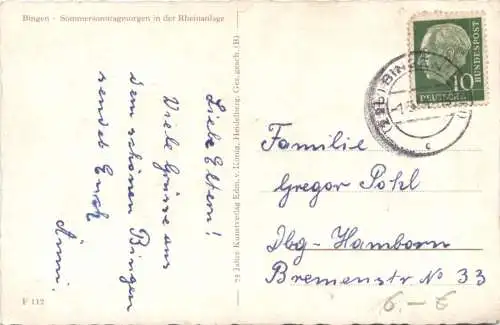 Bingen - Sommersonntagmorgen in der Rheinanlage
Liebe Eltern!
Viele Grüsse aus
dem schönen Bingen
sendet Euch
Änni.
25 Jahre Kunstverlag Edm. v. König, Heidelberg. Ges. gesch. (B)
F 112
10
DEUTSCHE
BUNDESPOST
BINGEN
c
Familie
Gregor Pohl
Dbg-Hamborn
Bremenstr No 33
6.- €